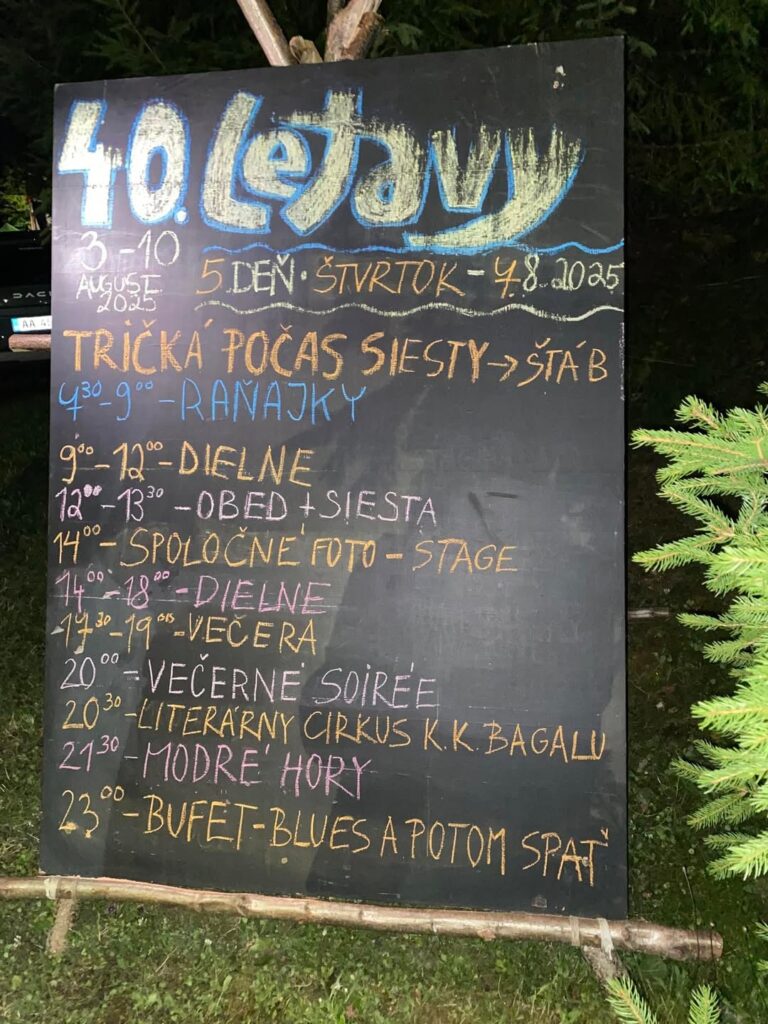 40. Letavy
3 – 10
AUGUST
2025
5 DEŇ • ŠTVRTOK – 7.8.2025
TRIČKÁ POČAS SIESTY → ŠTÁB
7³⁰ – 9⁰⁰ – RAŇAJKY
9⁰⁰ – 12⁰⁰ – DIELNE
12⁰⁰ – 13³⁰ – OBED + SIESTA
14⁰⁰ – SPOLOČNÉ FOTO – STAGE
14⁰⁰ – 18⁰⁰ – DIELNE
17³⁰ – 19⁰⁰ – VEČERA
20⁰⁰ – VEČERNÉ SOIRÉE
20³⁰ – LITERÁRNY CIRKUS K.K. BAGALU
21³⁰ – MODRÉ HORY
23⁰⁰ – BUFET – BLUES A POTOM SPAŤ